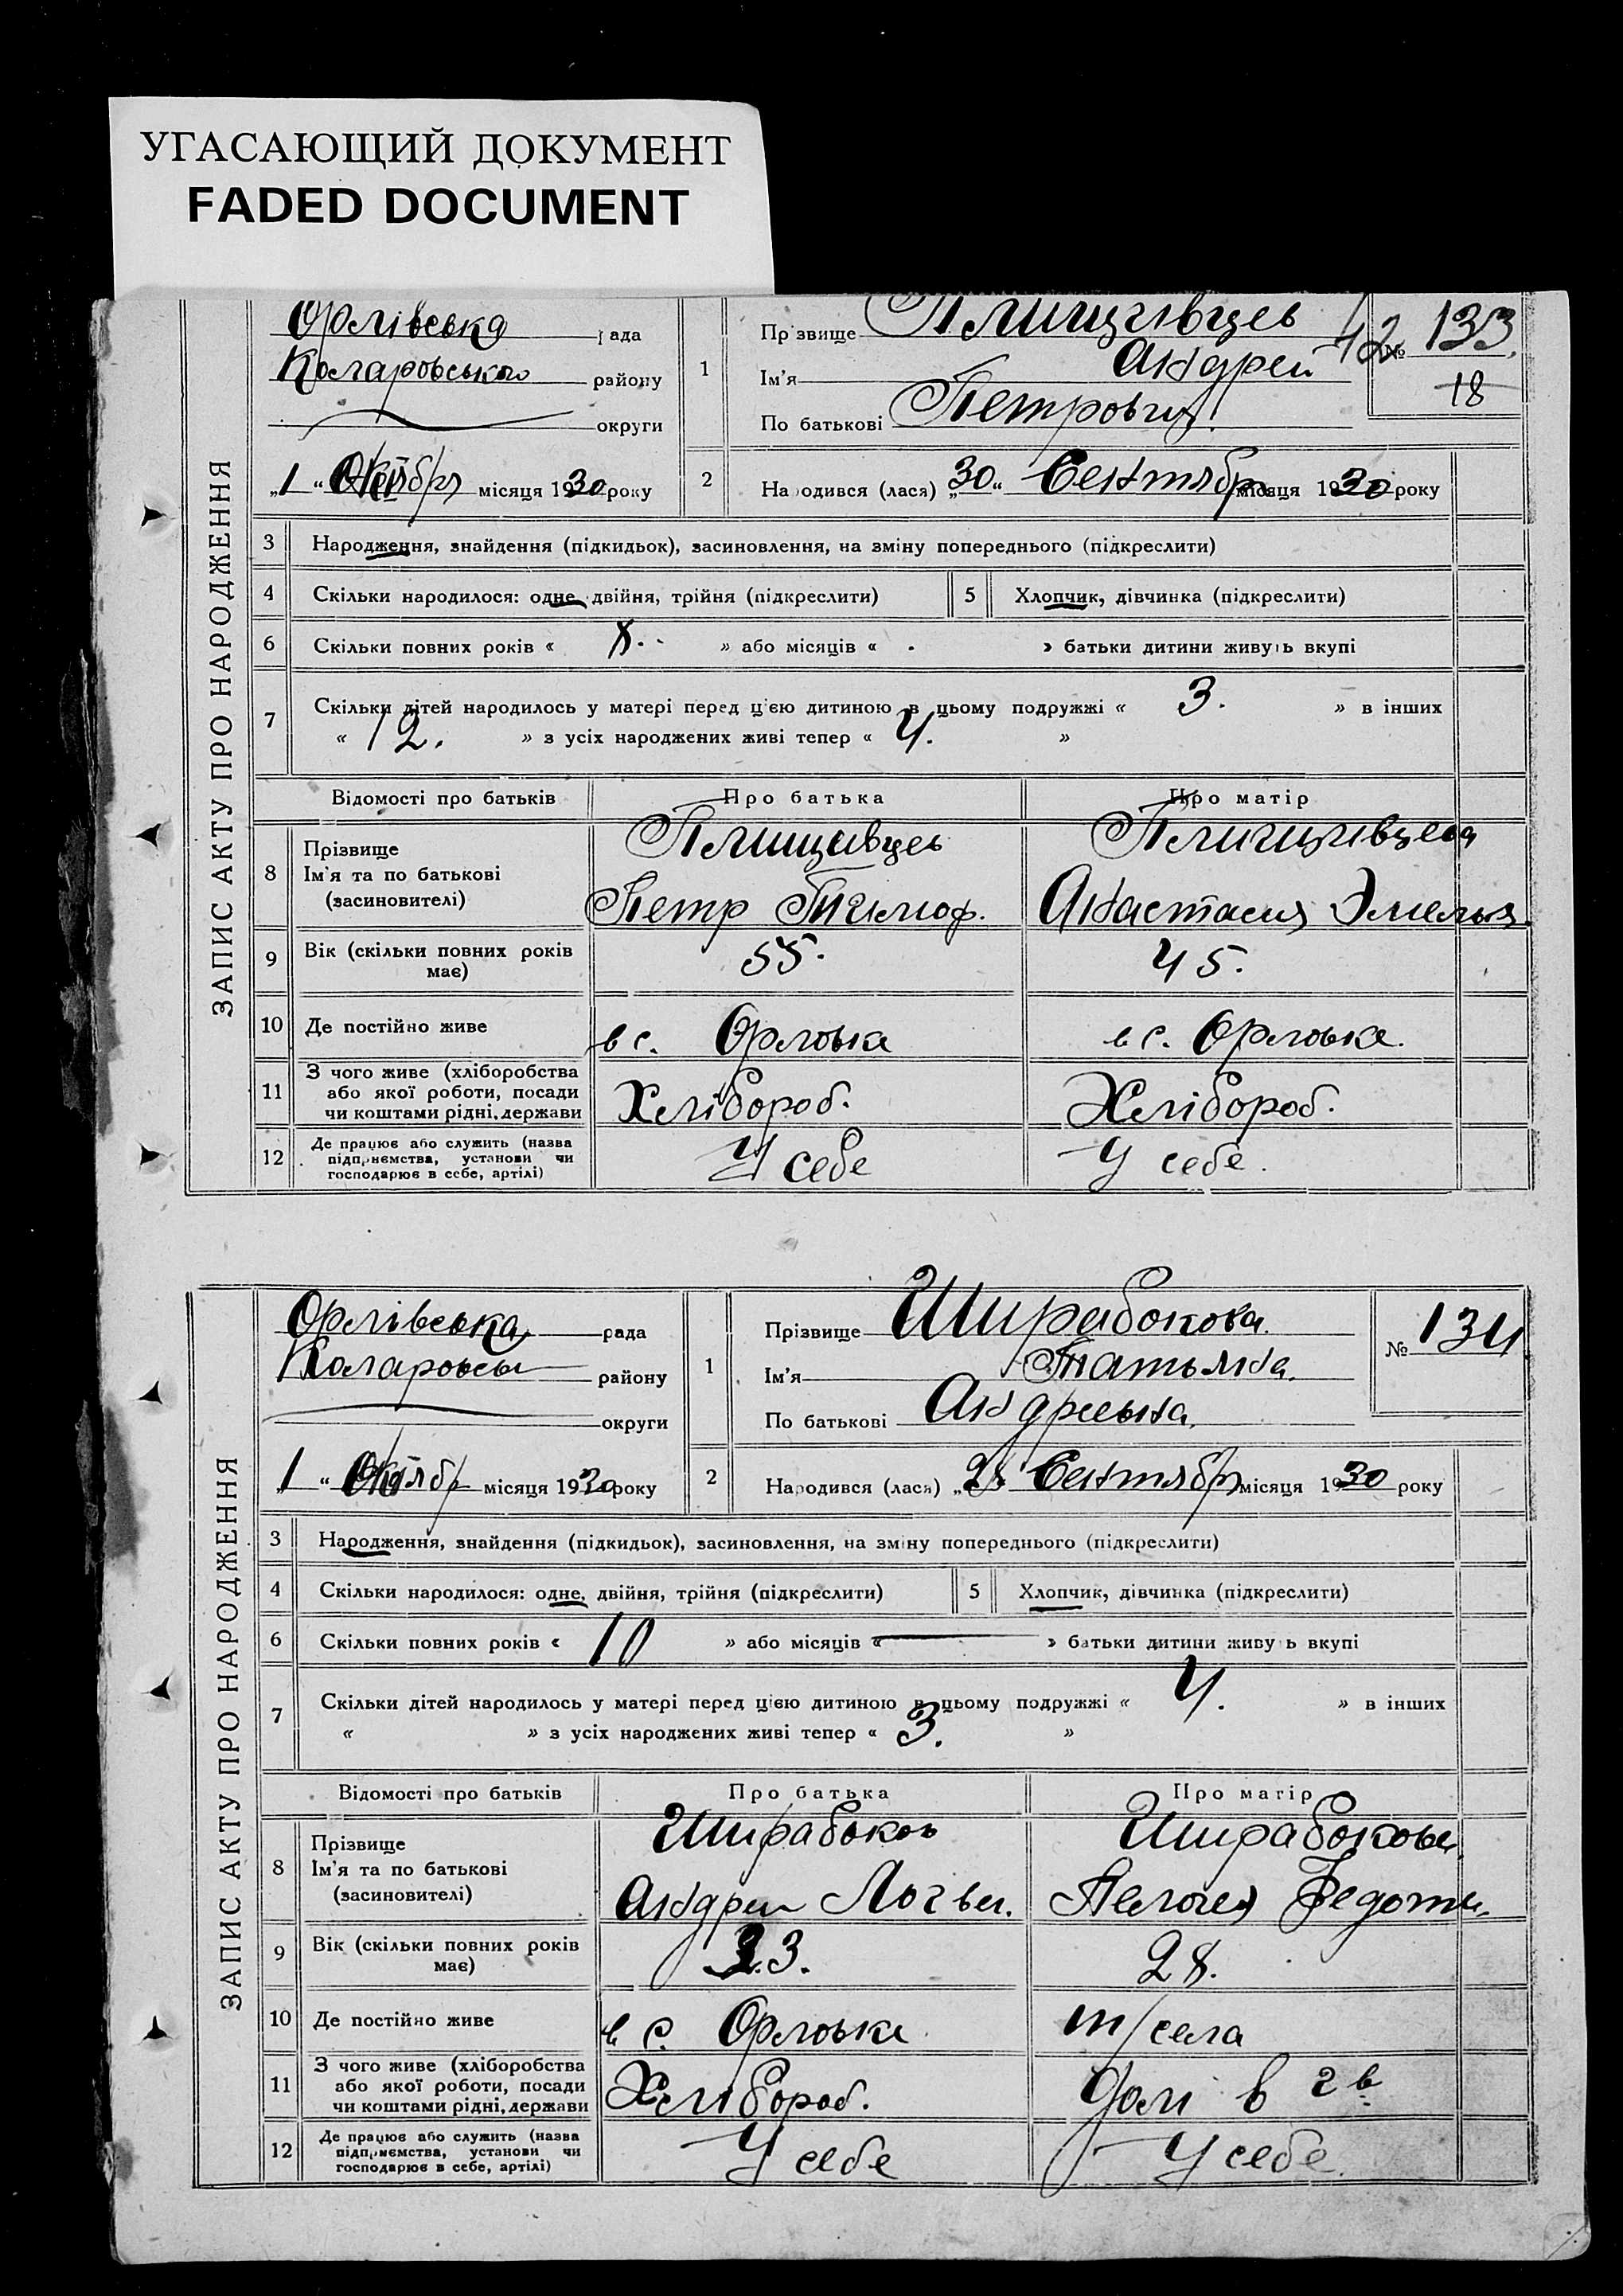 УГАСАЮЩИЙ ДОКУМЕНТ
FADED DOCUMENT
ЗАПИС АКТУ ПРО НАРОДЖЕННЯ
Орлівська рада
Коларовського району
округи
„1“ Октябр місяця 1930 року
1
Прізвище Плищивцев
Ім'я Андрей
По батькові Петрович
42 № 133
18
2 Народився (лася) „30“ Сентябр місяця 1930 року
3 Народження, знайдення (підкидьок), засиновлення, на зміну попереднього (підкреслити)
4 Скільки народилося: одне, двійня, трійня (підкреслити) 5 Хлопчик, дівчинка (підкреслити)
6 Скільки повних років « 8. » або місяців « » батьки дитини живуть вкупі
7 Скільки дітей народилось у матері перед цією дитиною в цьому подружжі « 3. » в інших
« 12. » з усіх народжених живі тепер « 4. »
Відомості про батьків Про батька Про матір
8 Прізвище Плищивцев Плищивцева
Ім'я та по батькові
(засиновителі) Петр Тихмоф. Анастасия Эмелья
9 Вік (скільки повних років має) 55. 45.
10 Де постійно живе в с. Орловка в с. Орловке.
11 З чого живе (хліборобства
або якої роботи, посади
чи коштами рідні, держави Хлібороб. Хлібороб.
12 Де працює або служить (назва
підприємства, установи чи
господарює в себе, артілі) У себе У себе.
ЗАПИС АКТУ ПРО НАРОДЖЕННЯ
Орлівська рада
Коларовськ району
округи
„1“ Октябр місяця 1930 року
1
Прізвище Ширабокова.
Ім'я Татьяна.
По батькові Андреевна.
№ 134
2 Народився (лася) „28 Сентябр місяця 1930 року
3 Народження, знайдення (підкидьок), засиновлення, на зміну попереднього (підкреслити)
4 Скільки народилося: одне, двійня, трійня (підкреслити) 5 Хлопчик, дівчинка (підкреслити)
6 Скільки повних років « 10 » або місяців « — » батьки дитини живуть вкупі
7 Скільки дітей народилось у матері перед цією дитиною в цьому подружжі « 4. » в інших
« » з усіх народжених живі тепер « 3. »
Відомості про батьків Про батька Про матір
8 Прізвище Ширабоков Ширабокова
Ім'я та по батькові
(засиновителі) Андреи Логвен. Пелогея Федоти.
9 Вік (скільки повних років має) 33. 28.
10 Де постійно живе в с. Орловке т/села
11 З чого живе (хліборобства
або якої роботи, посади
чи коштами рідні, держави Хлібороб. в
12 Де працює або служить (назва
підприємства, установи чи
господарює в себе, артілі) У себе У себе.